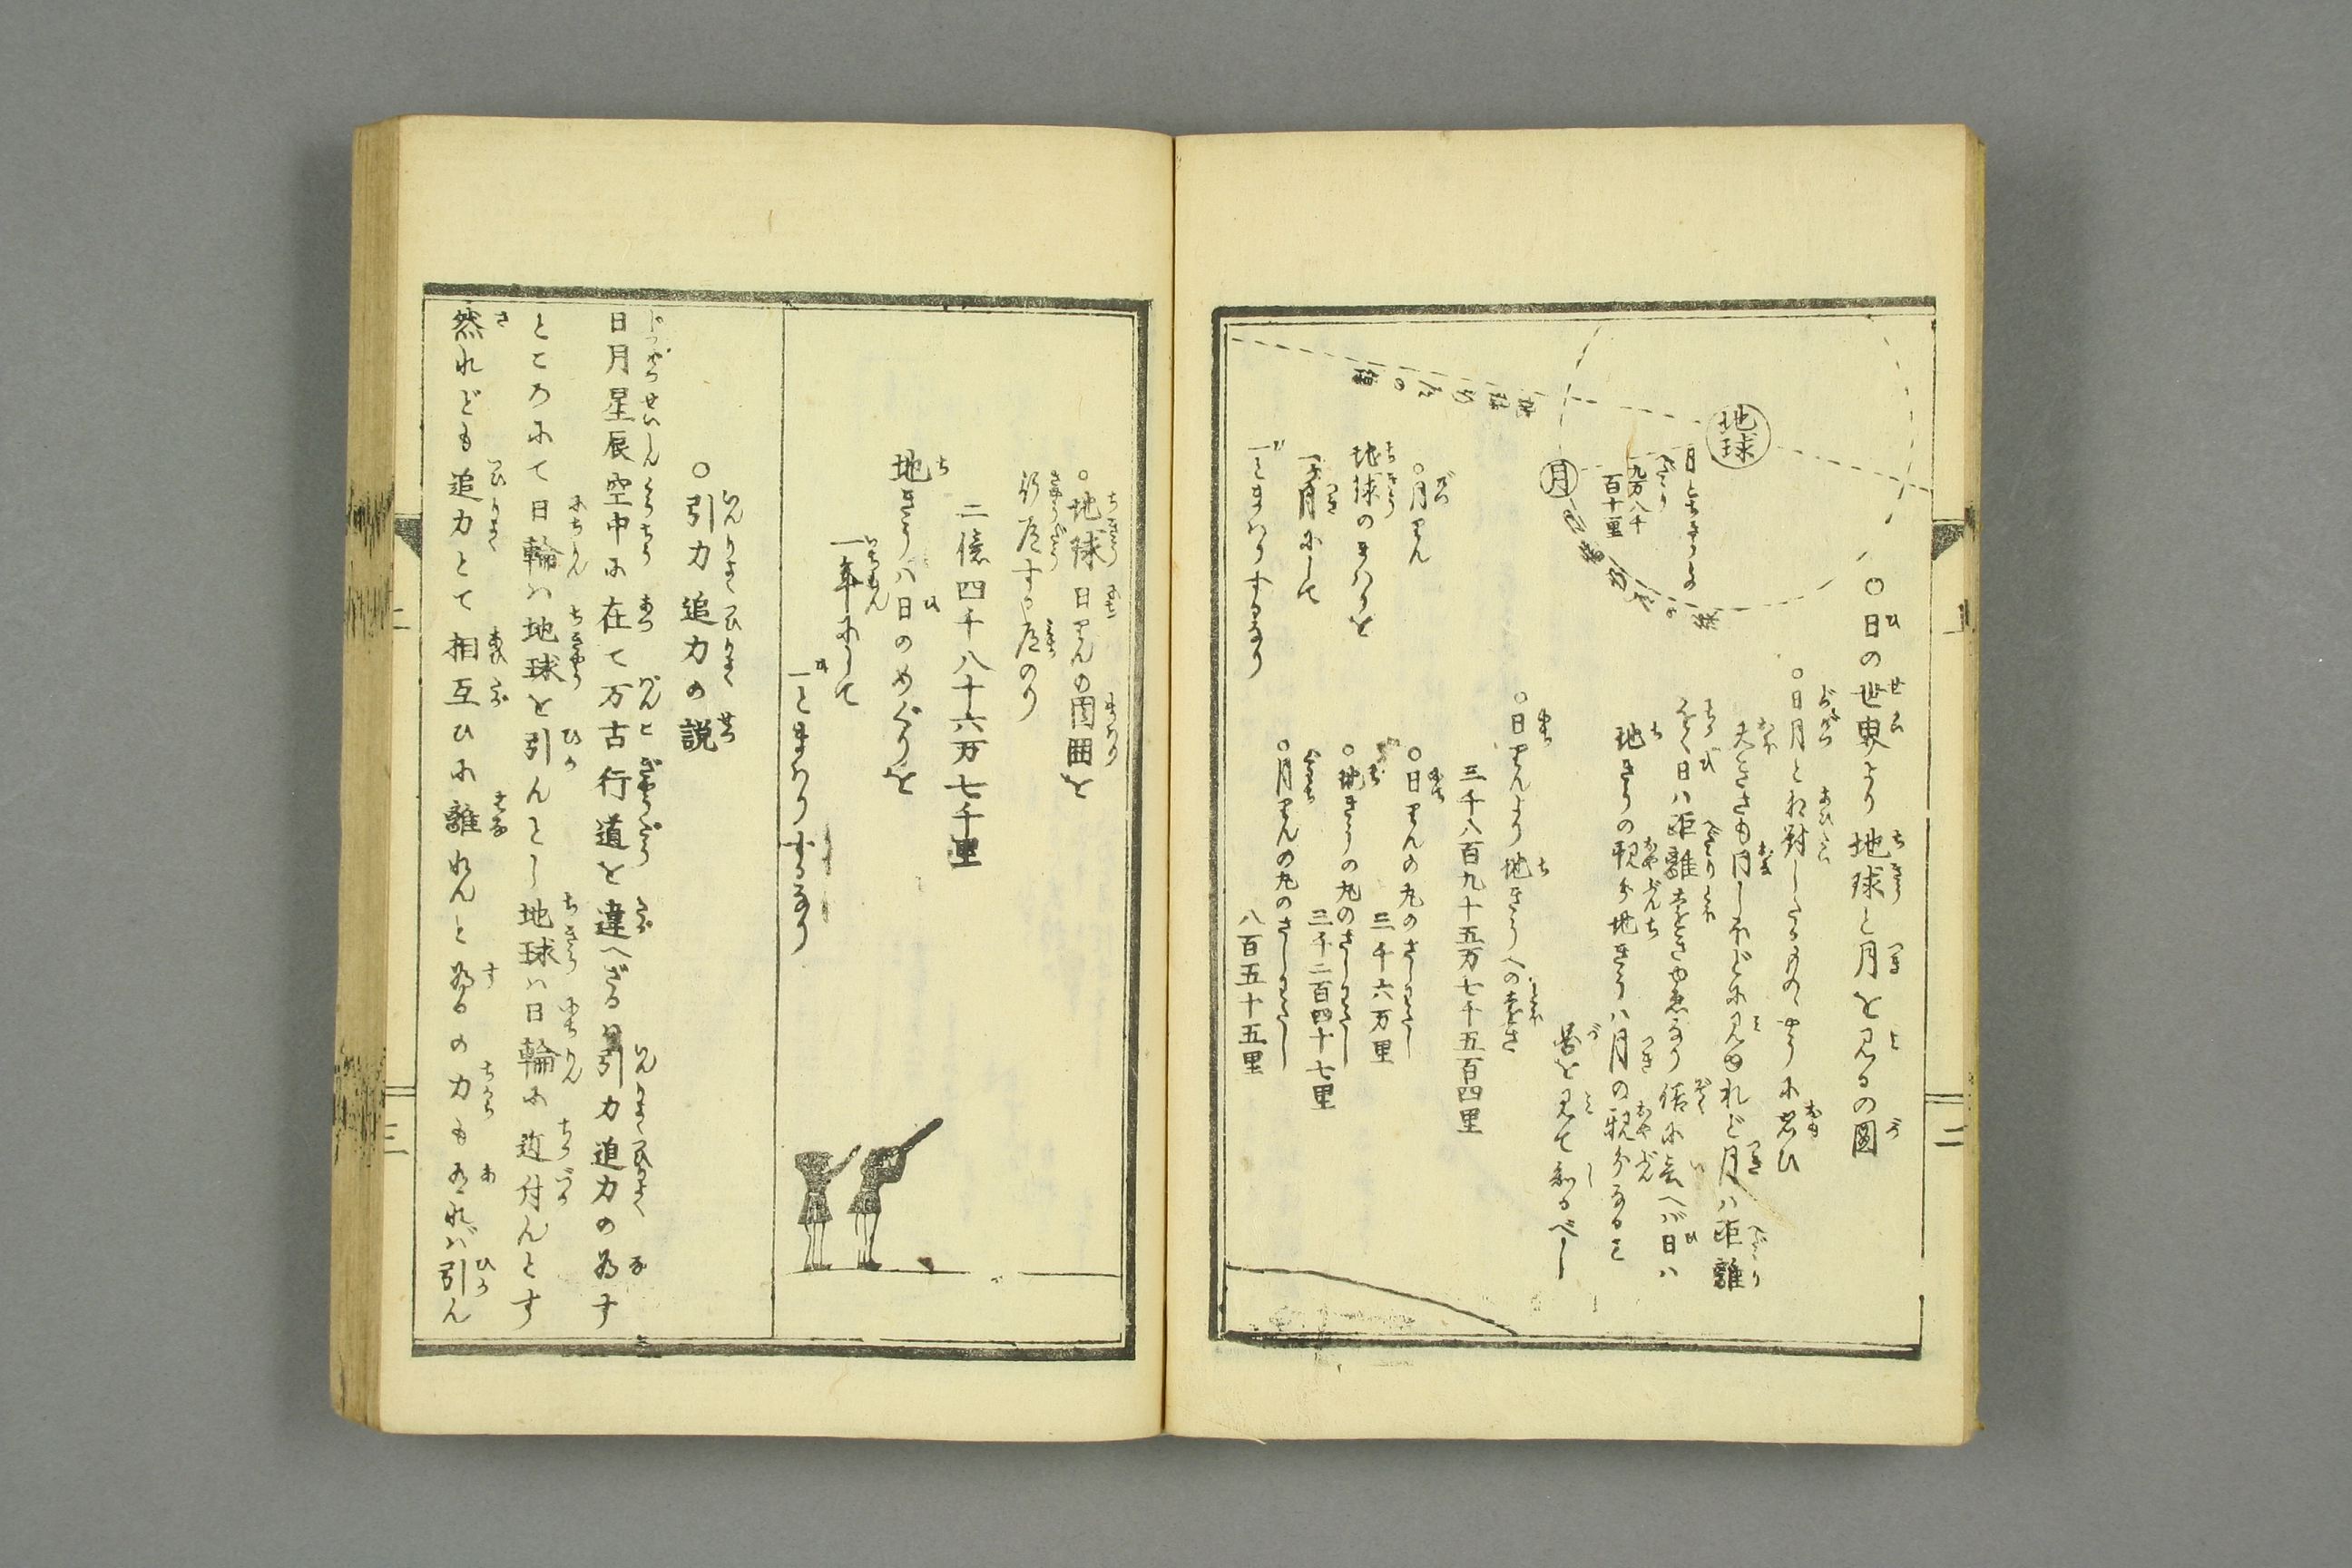 ○日の世界より地球と月を見るの圖
○日月と相對したるもののやうに思ひ
大きさも月しほどに見ゆれど月ハ距離
ちかく日ハ距離とほきゆゑなり俗に云へバ日ハ
地きうの親分地きうハ月の親分なるを
圖を見て知るべし
地球
月
月と地きうの
へだたり
九万八千
百十里
○日りんより地きうへの遠さ
三千八百九十五万七千五百四里
○日りんの丸のさしわたし
三千六万里
○地きうの丸のさしわたし
三千二百四十七里
○月りんの丸のさしわたし
八百五十五里
○月りん
地球のまハりを
一ヶ月にして
一とまハりするなり
二
○地球日りんの周囲を
行道する道のり
二億四千八十六万七千里
地きうハ日のめぐりを
一年にして
一とまハりするなり
○引力追力の説
日月星辰空中に在て万古行道を違へざるハ引力追力の為す
ところにて日輪ハ地球を引んとし地球ハ日輪に近付んとす
然れども追力とて相互ひに離れんと為るの力も有れバ引ん
三